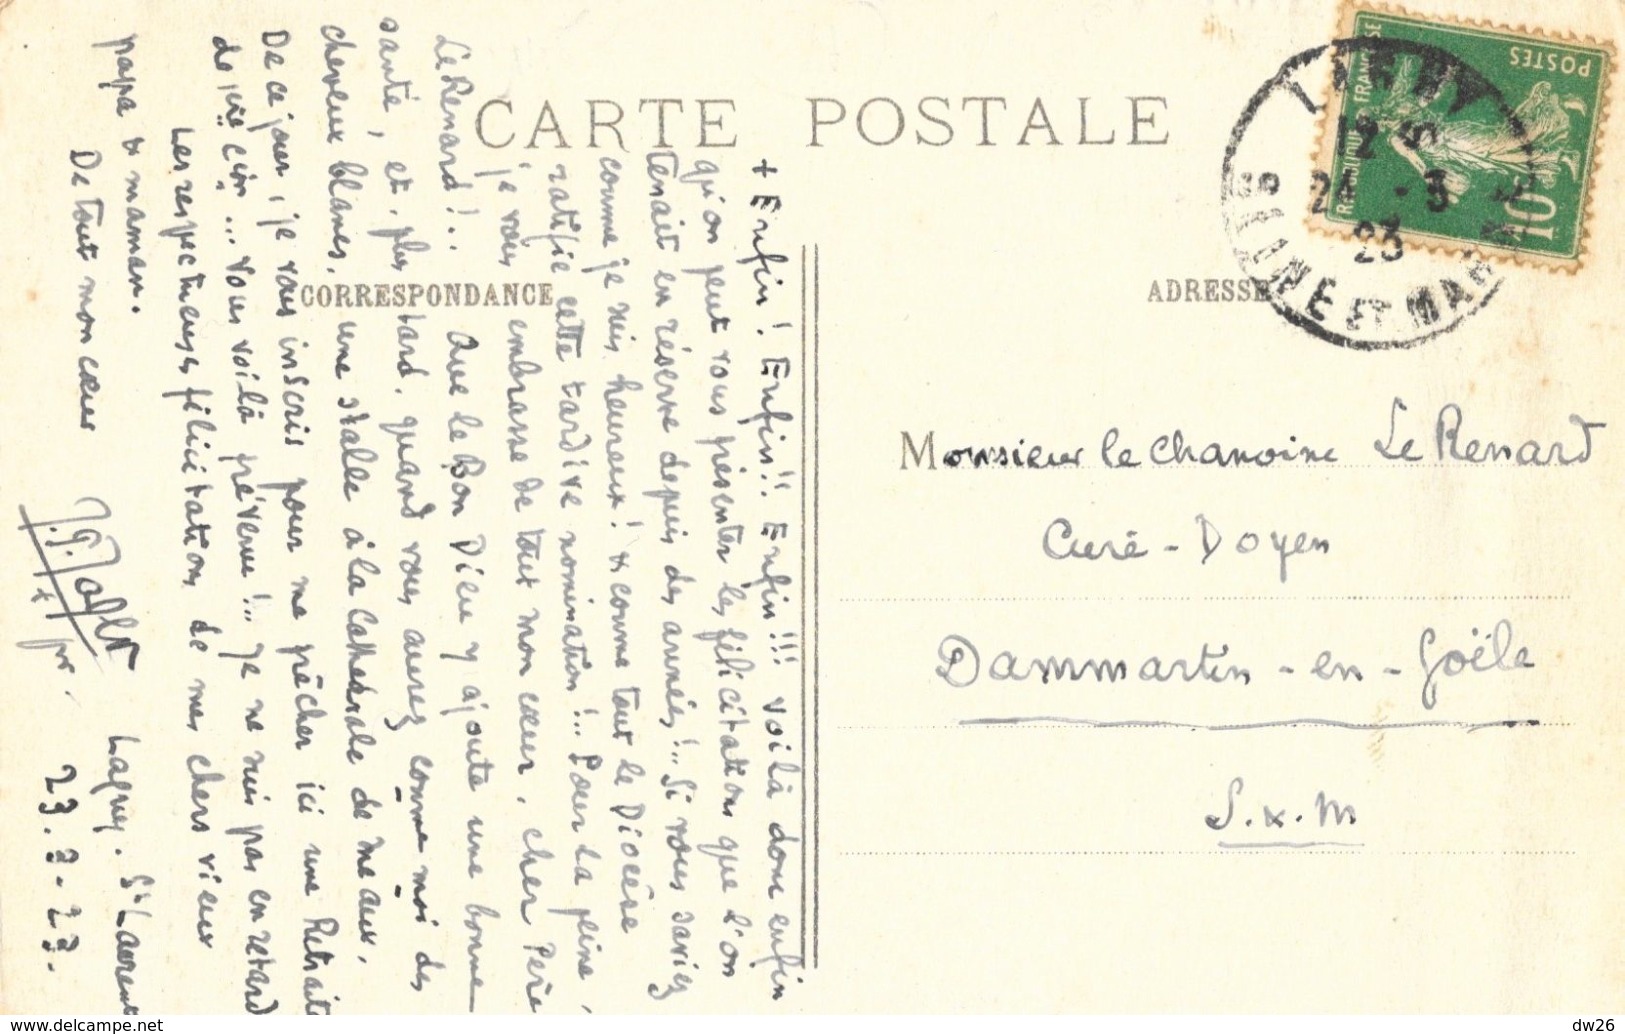 CARTE POSTALE
CORRESPONDANCE
ADRESSE
RÉPUBLIQUE FRANÇAISE
POSTES
10c
LAGNY
12
24 - 3
23
SEINE ET MARNE
+ Enfin ! Enfin !! Enfin !!! voilà donc enfin
qu'on peut vous présenter les félicitations que l'on
tenait en réserve depuis des années !.. Si vous saviez
comme je suis heureux ! & comme tout le Diocèse
ratifie cette tardive nomination !.. Pour la peine,
je vous embrasse de tout mon cœur, cher Père
Le Renard !.. Que le Bon Dieu y ajoute une bonne
santé, et, plus tard, quand vous aurez comme moi des
cheveux blancs, une stalle à la Cathédrale de Meaux.
De ce jour, je vous inscris pour me prêcher ici une Retraite
de 1ère Cion... vous voilà prévenu !.. Je ne suis pas en retard
Les respectueuses félicitations de mes chers vieux
papa & maman.
De tout mon cœur
Lagny. St Laurent
23.3.23.
Monsieur le Chanoine Le Renard
Curé - Doyen
Dammartin-en-Goële
S.&.M
www.delcampe.net
dw26